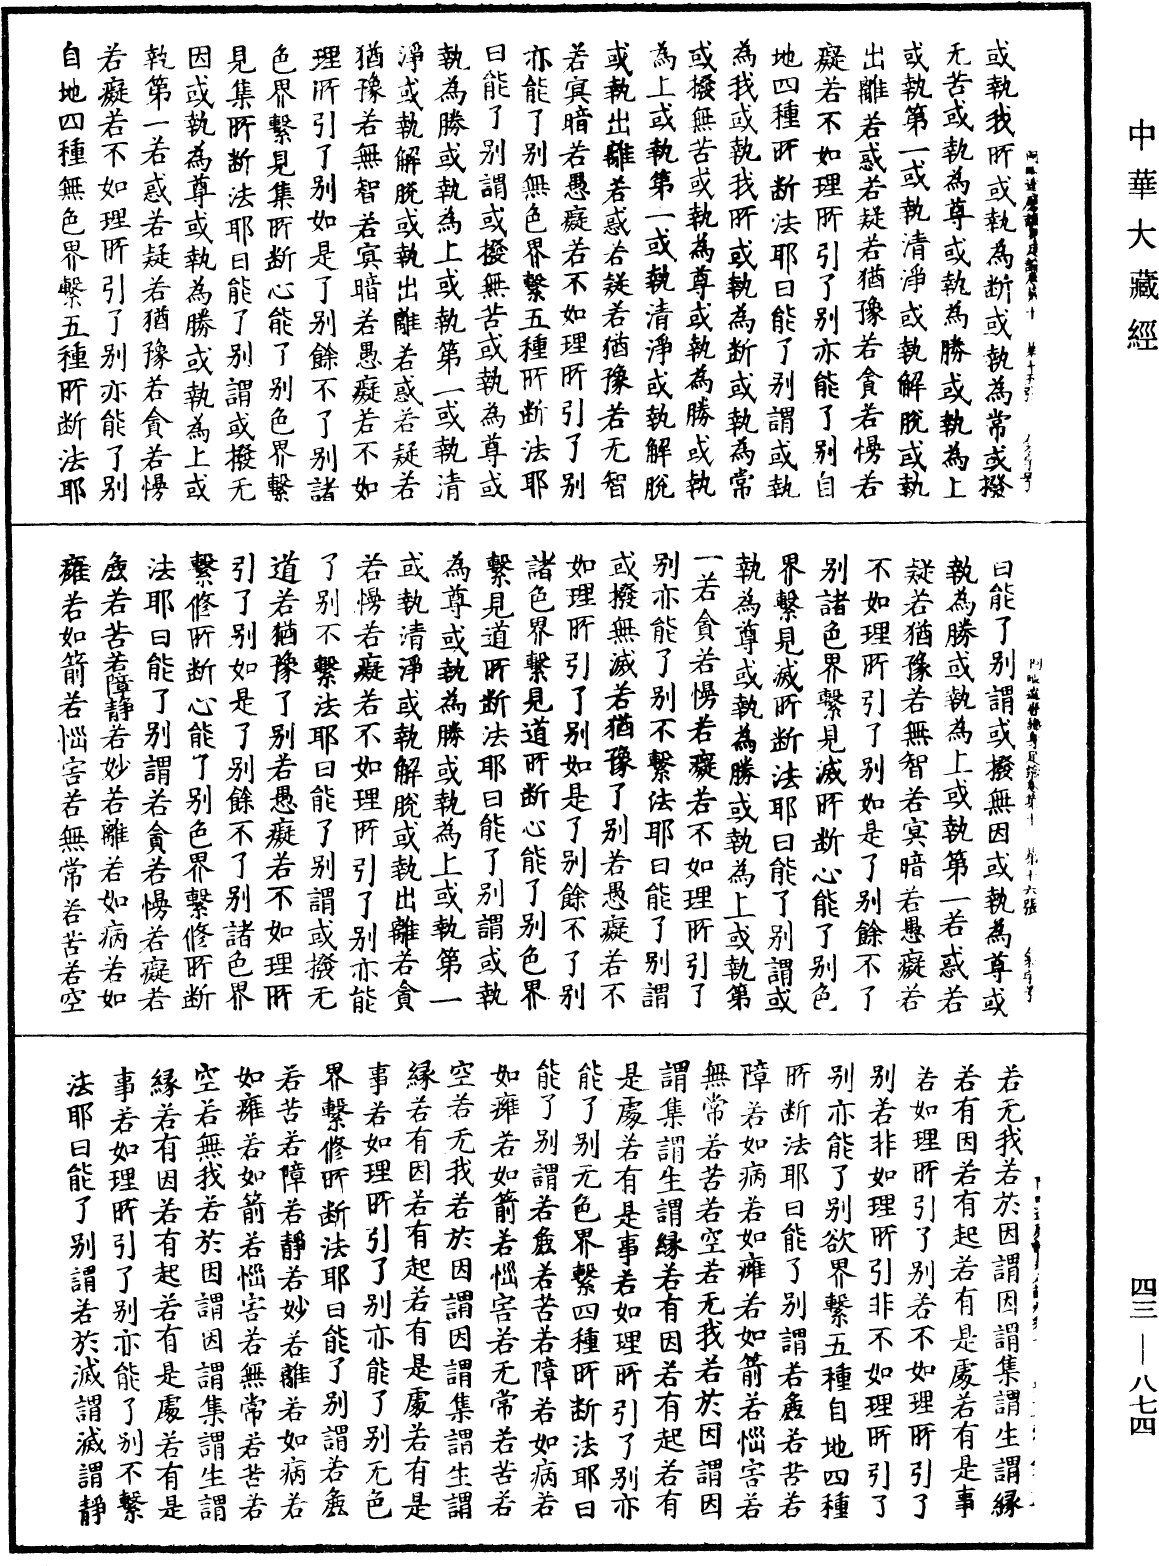 中華大藏經
或執我所或執為斷或執為常或撥
无苦或執為尊或執為勝或執為上
或執第一或執清淨或執解脫或執
出離若惑若疑若猶豫若貪若慢若
癡若不如理所引了別亦能了別自
地四種所斷法耶曰能了別謂或執
為我或執我所或執為斷或執為常
或撥無苦或執為尊或執為勝或執
為上或執第一或執清淨或執解脫
或執出離若惑若疑若猶豫若无智
若冥暗若愚癡若不如理所引了別
亦能了別無色界繫五種所斷法耶
曰能了別謂或撥無苦或執為尊或
執為勝或執為上或執第一或執清
淨或執解脫或執出離若惑若疑若
猶豫若無智若冥暗若愚癡若不如
理所引了別如是了別餘不了別諸
色界繫見集所斷心能了別色界繫
見集所斷法耶曰能了別謂或撥无
因或執為尊或執為勝或執為上或
執第一若惑若疑若猶豫若貪若慢
若癡若不如理所引了別亦能了別
自地四種無色界繫五種所斷法耶
曰能了別謂或撥無因或執為尊或
執為勝或執為上或執第一若惑若
疑若猶豫若無智若冥暗若愚癡若
不如理所引了別如是了別餘不了
別諸色界繫見滅所斷心能了別色
界繫見滅所斷法耶曰能了別謂或
執為尊或執為勝或執為上或執第
一若貪若慢若癡若不如理所引了
別亦能了別不繫法耶曰能了別謂
或撥無滅若猶豫了別若愚癡若不
如理所引了別如是了別餘不了別
諸色界繫見道所斷心能了別色界
繫見道所斷法耶曰能了別謂或執
為尊或執為勝或執為上或執第一
或執清淨或執解脫或執出離若貪
若慢若癡若不如理所引了別亦能
了別不繫法耶曰能了別謂或撥无
道若猶豫了別若愚癡若不如理所
引了別如是了別餘不了別諸色界
繫修所斷心能了別色界繫修所斷
法耶曰能了別謂若貪若慢若癡若
麁若苦若障靜若妙若離若如病若如
癰若如箭若惱害若無常若苦若空
若无我若於因謂因謂集謂生謂緣
若有因若有起若有是處若有是事
若如理所引了別若不如理所引了
別若非如理所引非不如理所引了
別亦能了別欲界繫五種自地四種
所斷法耶曰能了別謂若麁若苦若
障若如病若如癰若如箭若惱害若
無常若苦若空若无我若於因謂因
謂集謂生謂緣若有因若有起若有
是處若有是事若如理所引了別亦
能了別无色界繫四種所斷法耶曰
能了別謂若麁若苦若障若如病若
如癰若如箭若惱害若无常若苦若
空若无我若於因謂因謂集謂生謂
緣若有因若有起若有是處若有是
事若如理所引了別亦能了別无色
界繫修所斷法耶曰能了別謂若麁
若苦若障若靜若妙若離若如病若
如癰若如箭若惱害若無常若苦若
空若無我若於因謂因謂集謂生謂
緣若有因若有起若有是處若有是
事若如理所引了別亦能了別不繫
法耶曰能了別謂若於滅謂滅謂靜
四三—八七四